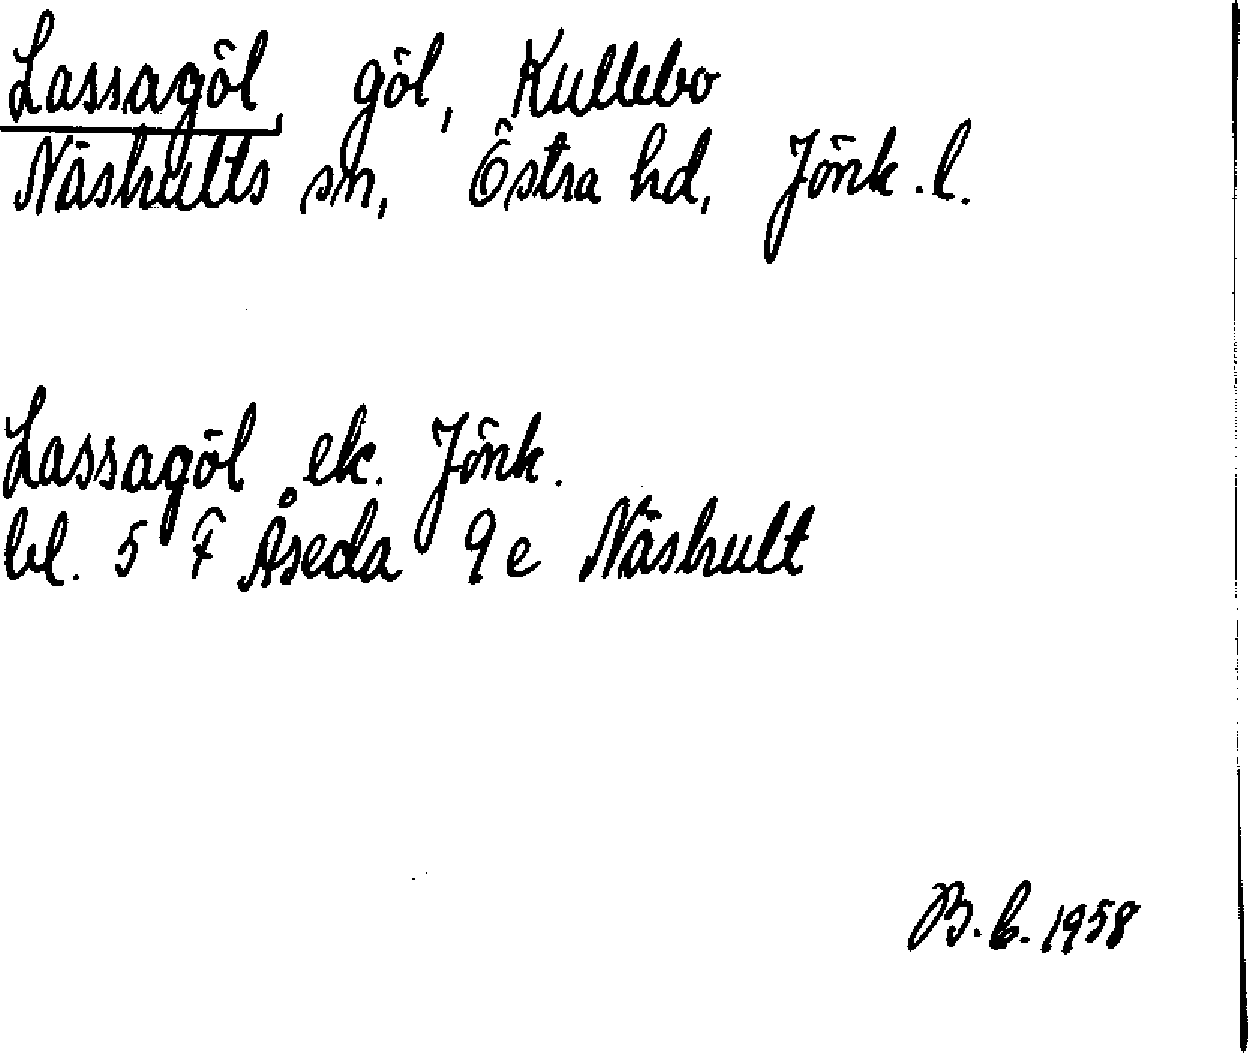 Lassagöl, göl, Kullebo
Näshults sn, Östra hd, Jönk.l.
Lassagöl ek. Jönk.
bl. 5 F Åseda 9e Näshult
B.b. 1958